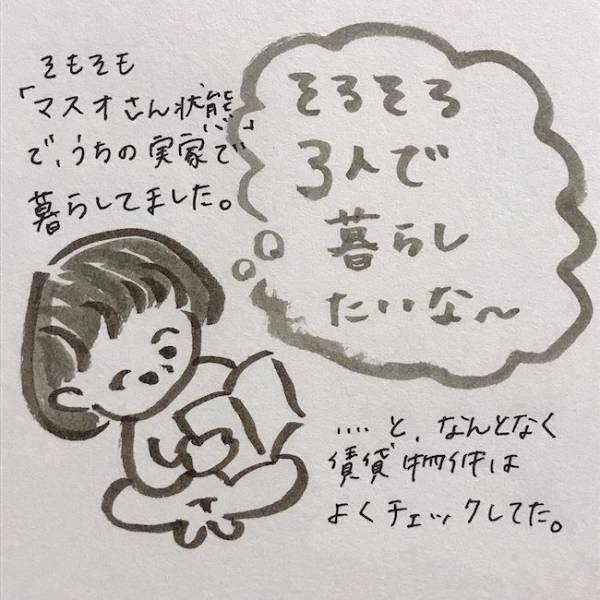 そもそも
「マスオさん状態」
で、うちの実家で
暮らしてました。
そろそろ
3人で
暮らし
たいな〜
‥‥と、なんとなく
賃貸物件は
よくチェックしてた。